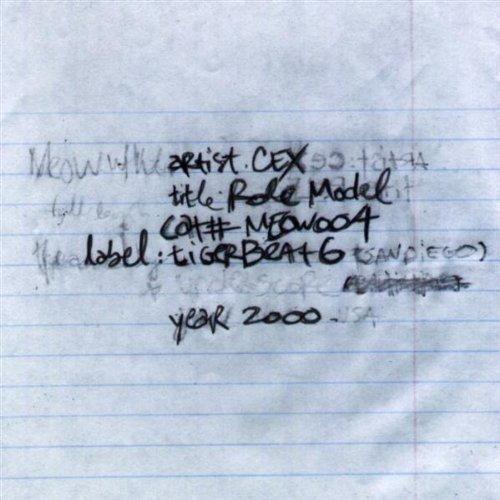 artist. CEX
title: Role Model
CAt# MEOW004
label: tiGERBEAt6 (SAN DIEGO)
year 2000.
USA